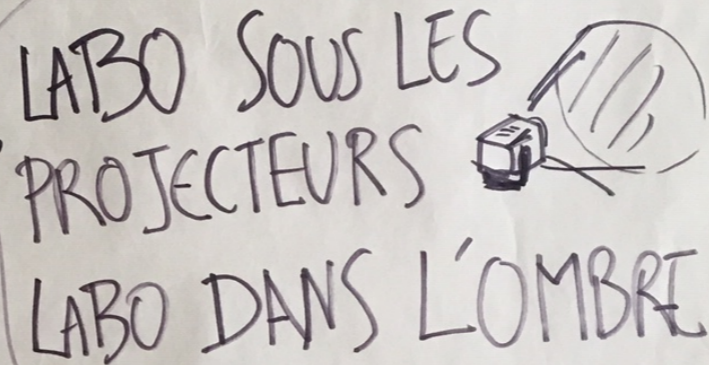 LABO SOUS LES
PROJECTEURS
LABO DANS L'OMBRE